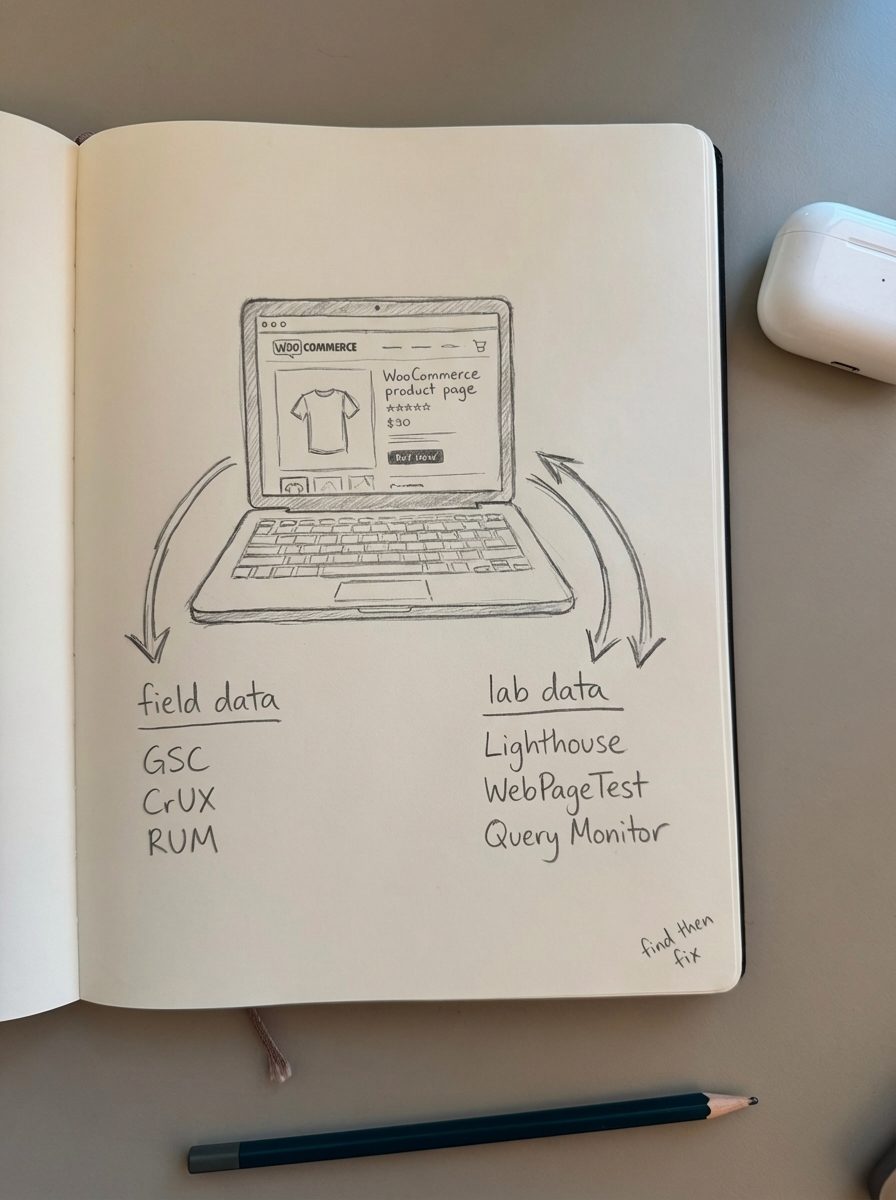 WOO COMMERCE
WooCommerce
product page
$90
BUY NOW
field data
GSC
CrUX
RUM
lab data
Lighthouse
WebPageTest
Query Monitor
find then
fix